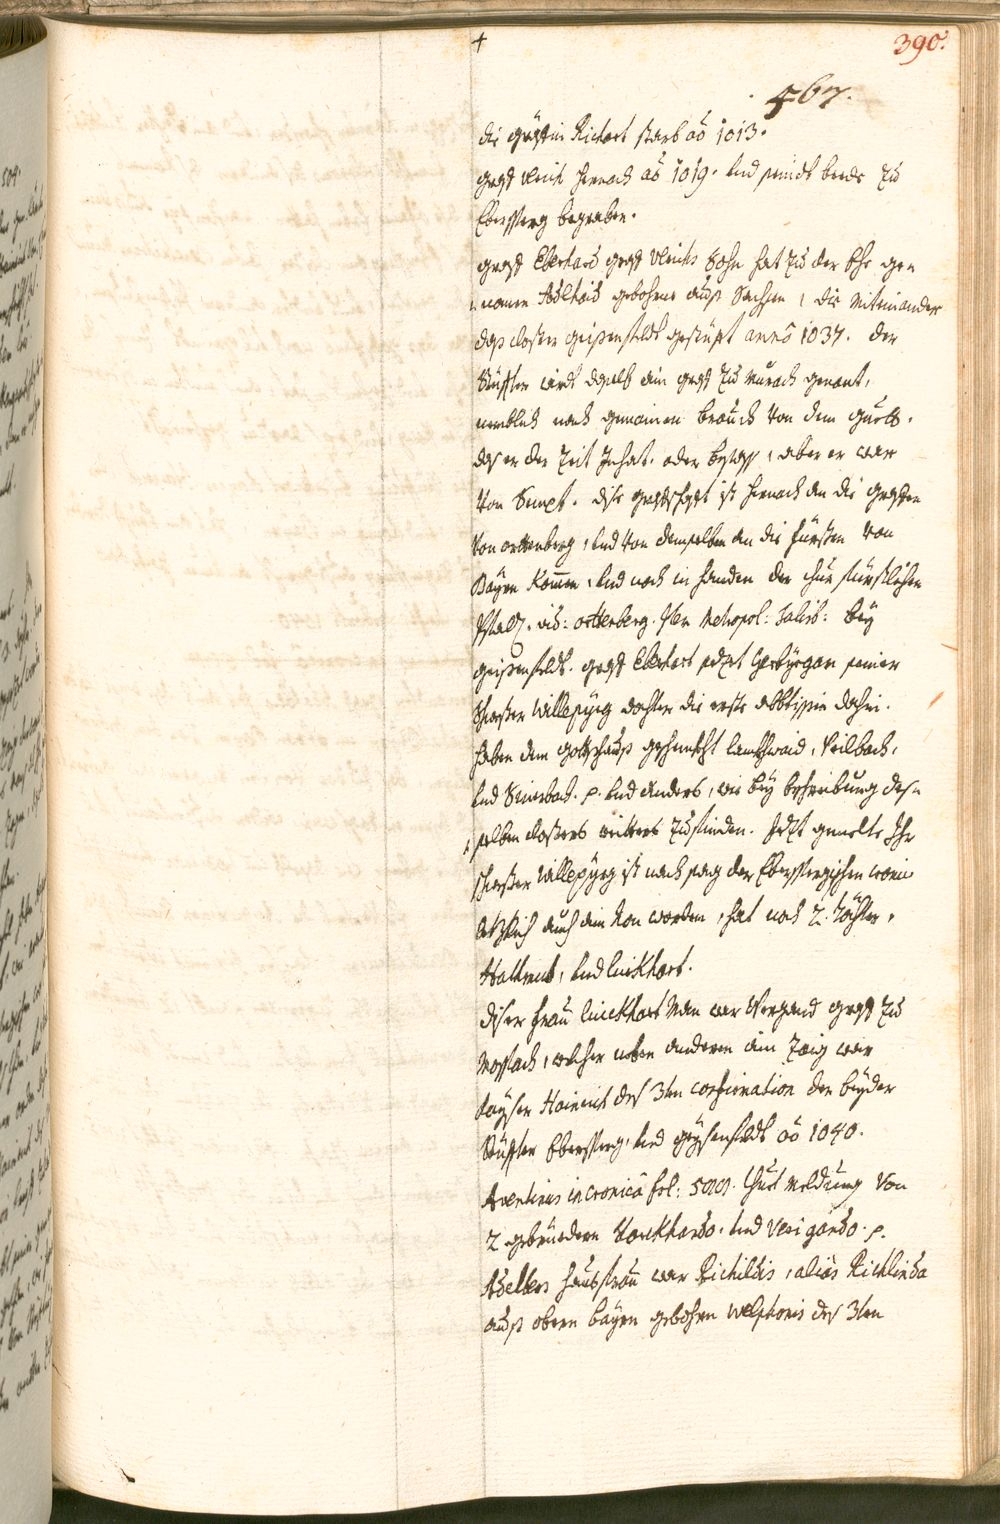 390.
467.
die gräffin Richart starb aō 1013.
graff Ulrich hernach aō 1019. und seindt beede zu
Ebersperg begraben.
graff Eberhard graff Ulrichs Sohn hat zu der Ehe gen
namen Adlhaid gebohrne auß Sachsen, die miteinander
das closter geißenfeldt gestüfft anno 1037. der
Stüffter wirdt daselb ein graff zu Murach genant,
nemblich nach gemainen brauch von dem guett.
das er der Zeit Inhat. oder besaß, aber er war
von Sempt. dise graffschafft ist hernach an die graffen
von ortenberg, und von demselben an die fürsten von
Bayrn kommen, und noch in handen der churfürstlichen
Pfalz. vid: orttenberg. Metropol: Salisb: bey
geißenfeldt. graff Eberhart sezt Gerbürgam seiner
Schwester Willepürg dochter die erste abbtissin dahin.
haben dem gottshauß geschenckht, Veilbach,
und. p. und anders, wie bey beschreibung des=
selben closters weitters zufinden. Jezt gemelte Ihr
schwester Willepürg ist nach sag der Eberspergischen cronic
leztlich auch ein Non worden, hat noch 2. döchter,
Hadtmut, und luickhart.
diser frau luickhart Man war Wergand graff zu
, welcher neben anderen ein Zeug war
kayser Hainrich des 3ten confirmation der beyder
Stüffter Ebersperg, und geysenfeldt aō 1040.
Aventinus in cronica fol: thuet meldung von
2 gebruedern Burckhardo. und Verigando. p.
Adelbero haußfrau war Richildis, alias Richlinda
auß obern bayrn gebohrn Welphonis des 3ten